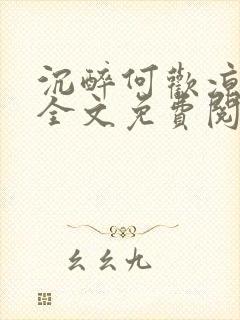 沉醉何歡涼
全文免費閱
幺幺九